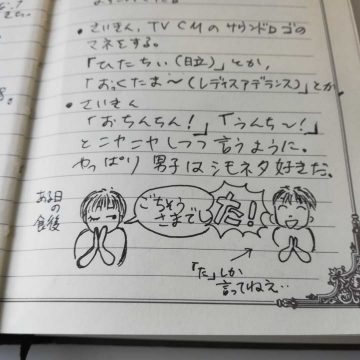 • さいきん、TV CMのサウンドロゴの
マネをする。
「ひたちぃ(日立)」とか、
「おっくたま〜(レディスアデランス)」とか
• さいきん
「おちんちん!」「うんち〜!」
とニヤニヤしつつ言うように。
やっぱり男子はシモネタ好きだ。
ある日
の
食後
ごちそう
さまでし
た!
「た」しか
言ってねえ…